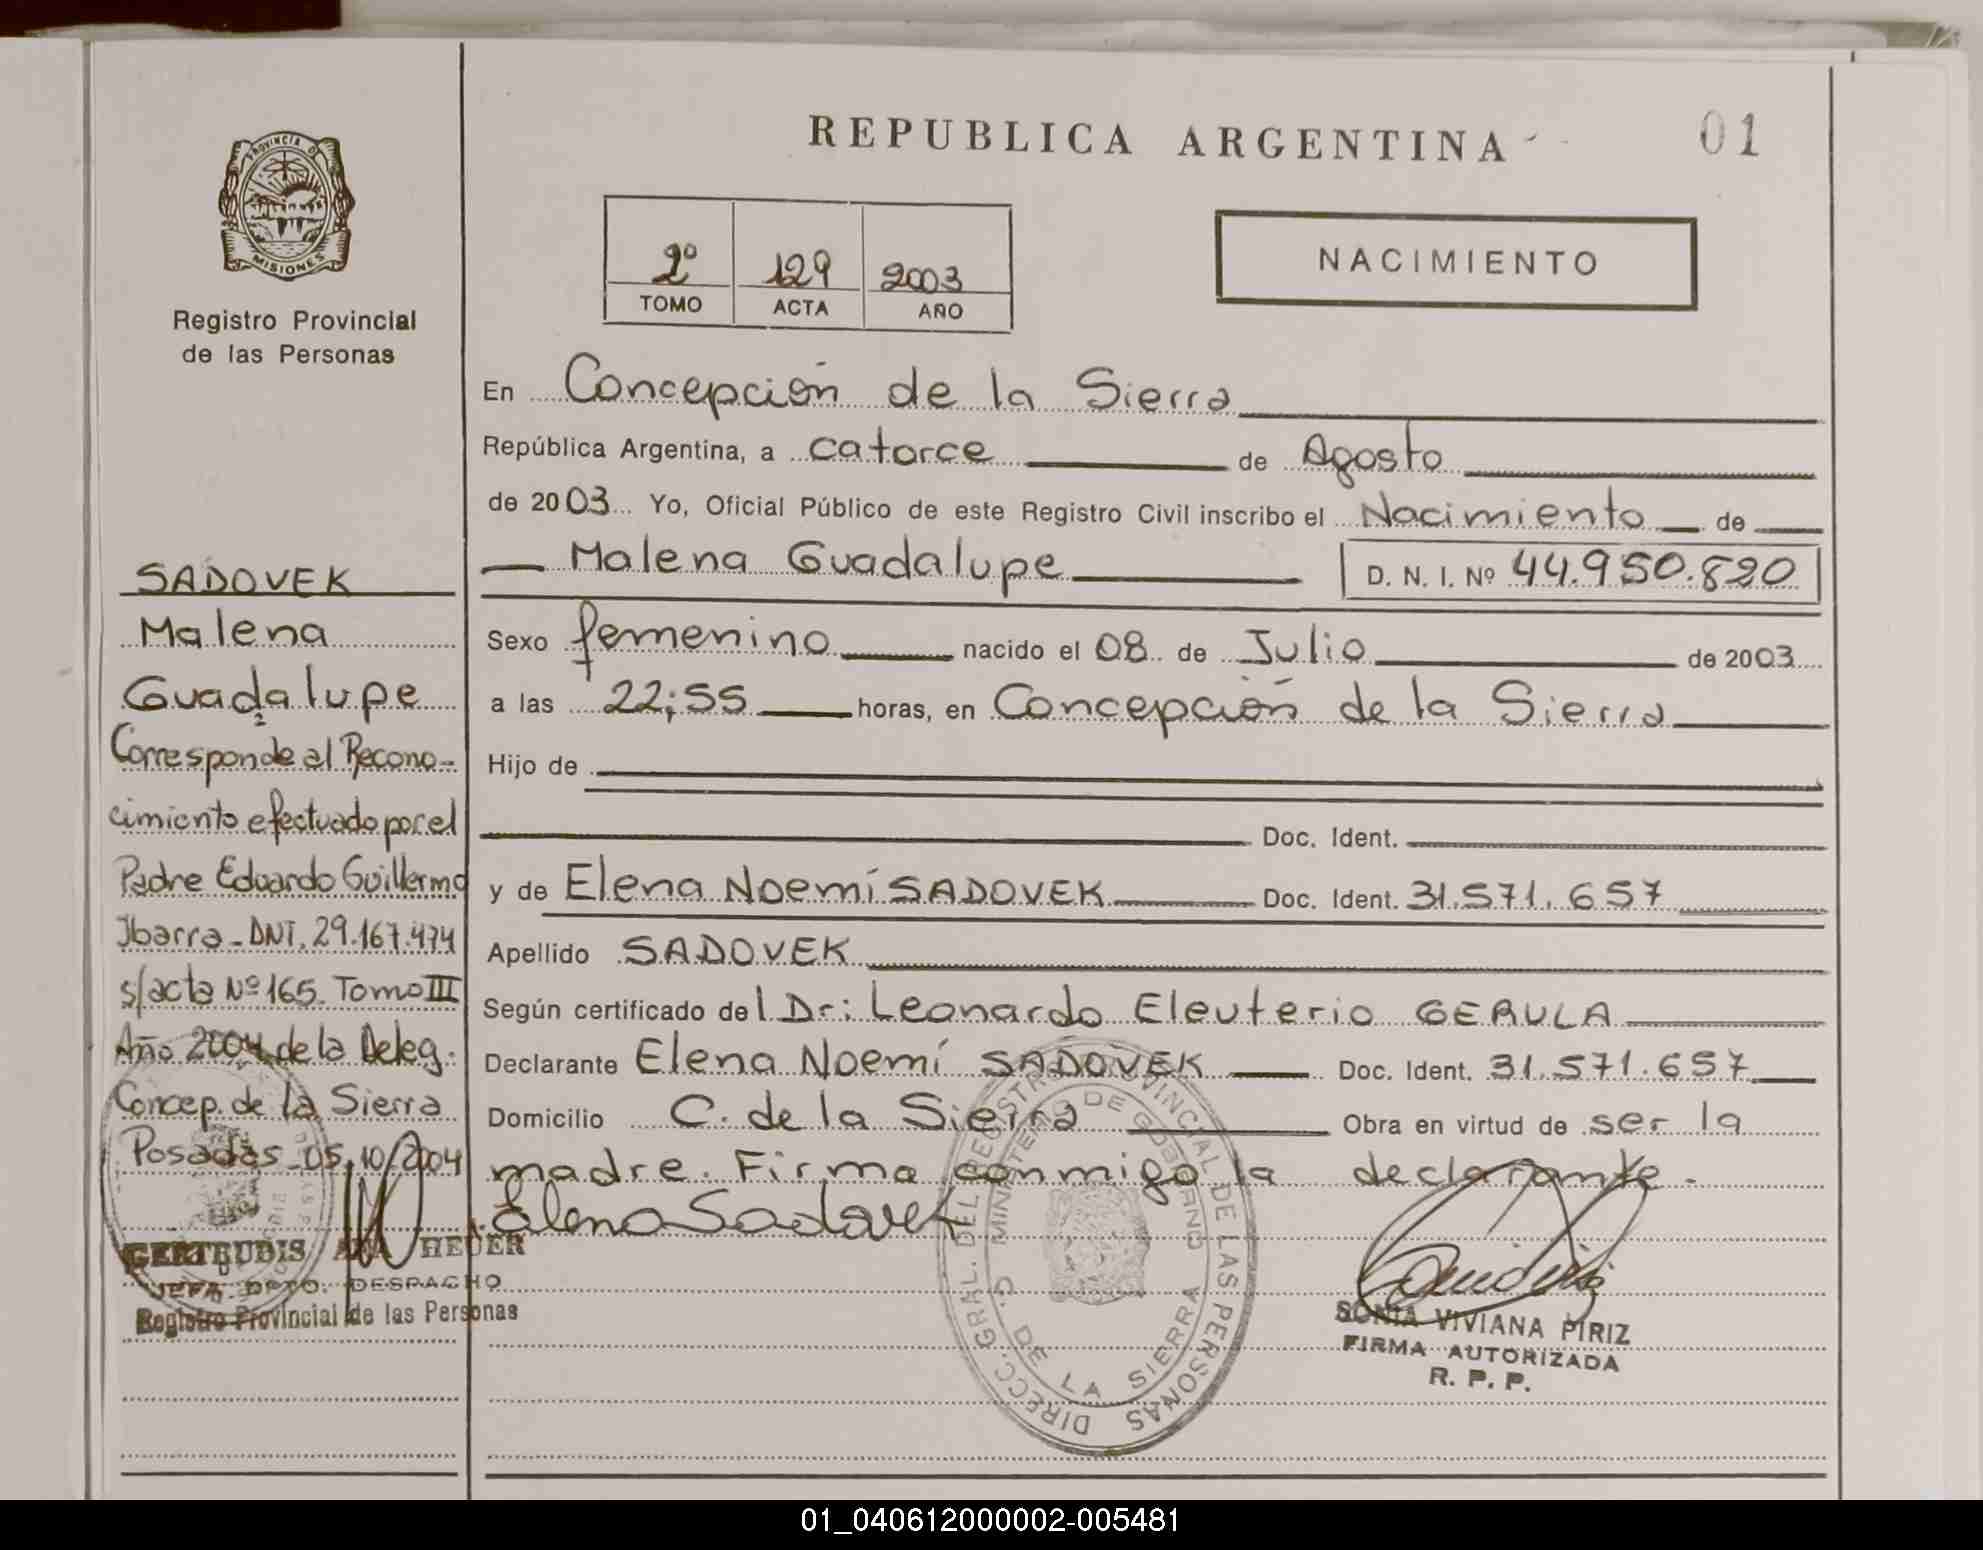 PROVINCIA DE
MISIONES
Registro Provincial
de las Personas
SADOVEK
Malena
Guadalupe
Corresponde al Recono-
cimiento efectuado por el
Padre Eduardo Guillermo
Ibarra - DNI. 29.167.474
s/acta Nº 165. Tomo III
Año 2004 de la Deleg.
Concep. de la Sierra
Posadas - 05/10/2004
GERTRUDIS ANA HEDER
JEFA DPTO. DESPACHO
Registro Provincial de las Personas
REPUBLICA ARGENTINA
01
2º 129 2003
TOMO ACTA AÑO
NACIMIENTO
En Concepción de la Sierra
República Argentina, a catorce de Agosto
de 2003 Yo, Oficial Público de este Registro Civil inscribo el Nacimiento de
Malena Guadalupe D. N. I. Nº 44.950.820
Sexo femenino nacido el 08 de Julio de 2003
a las 22;55 horas, en Concepción de la Sierra
Hijo de
Doc. Ident.
y de Elena Noemí SADOVEK Doc. Ident. 31.571.657
Apellido SADOVEK
Según certificado del Dr: Leonardo Eleuterio GERULA
Declarante Elena Noemí SADOVEK Doc. Ident. 31.571.657
Domicilio C. de la Sierra Obra en virtud de ser la
madre. Firma conmigo la declarante.
Elena Sadovek
DIRECC. GRAL. DEL REGISTRO PROVINCIAL DE LAS PERSONAS
MINISTERIO DE GOBIERNO
C. DE LA SIERRA
SONIA VIVIANA PIRIZ
FIRMA AUTORIZADA
R. P. P.
01_040612000002-005481